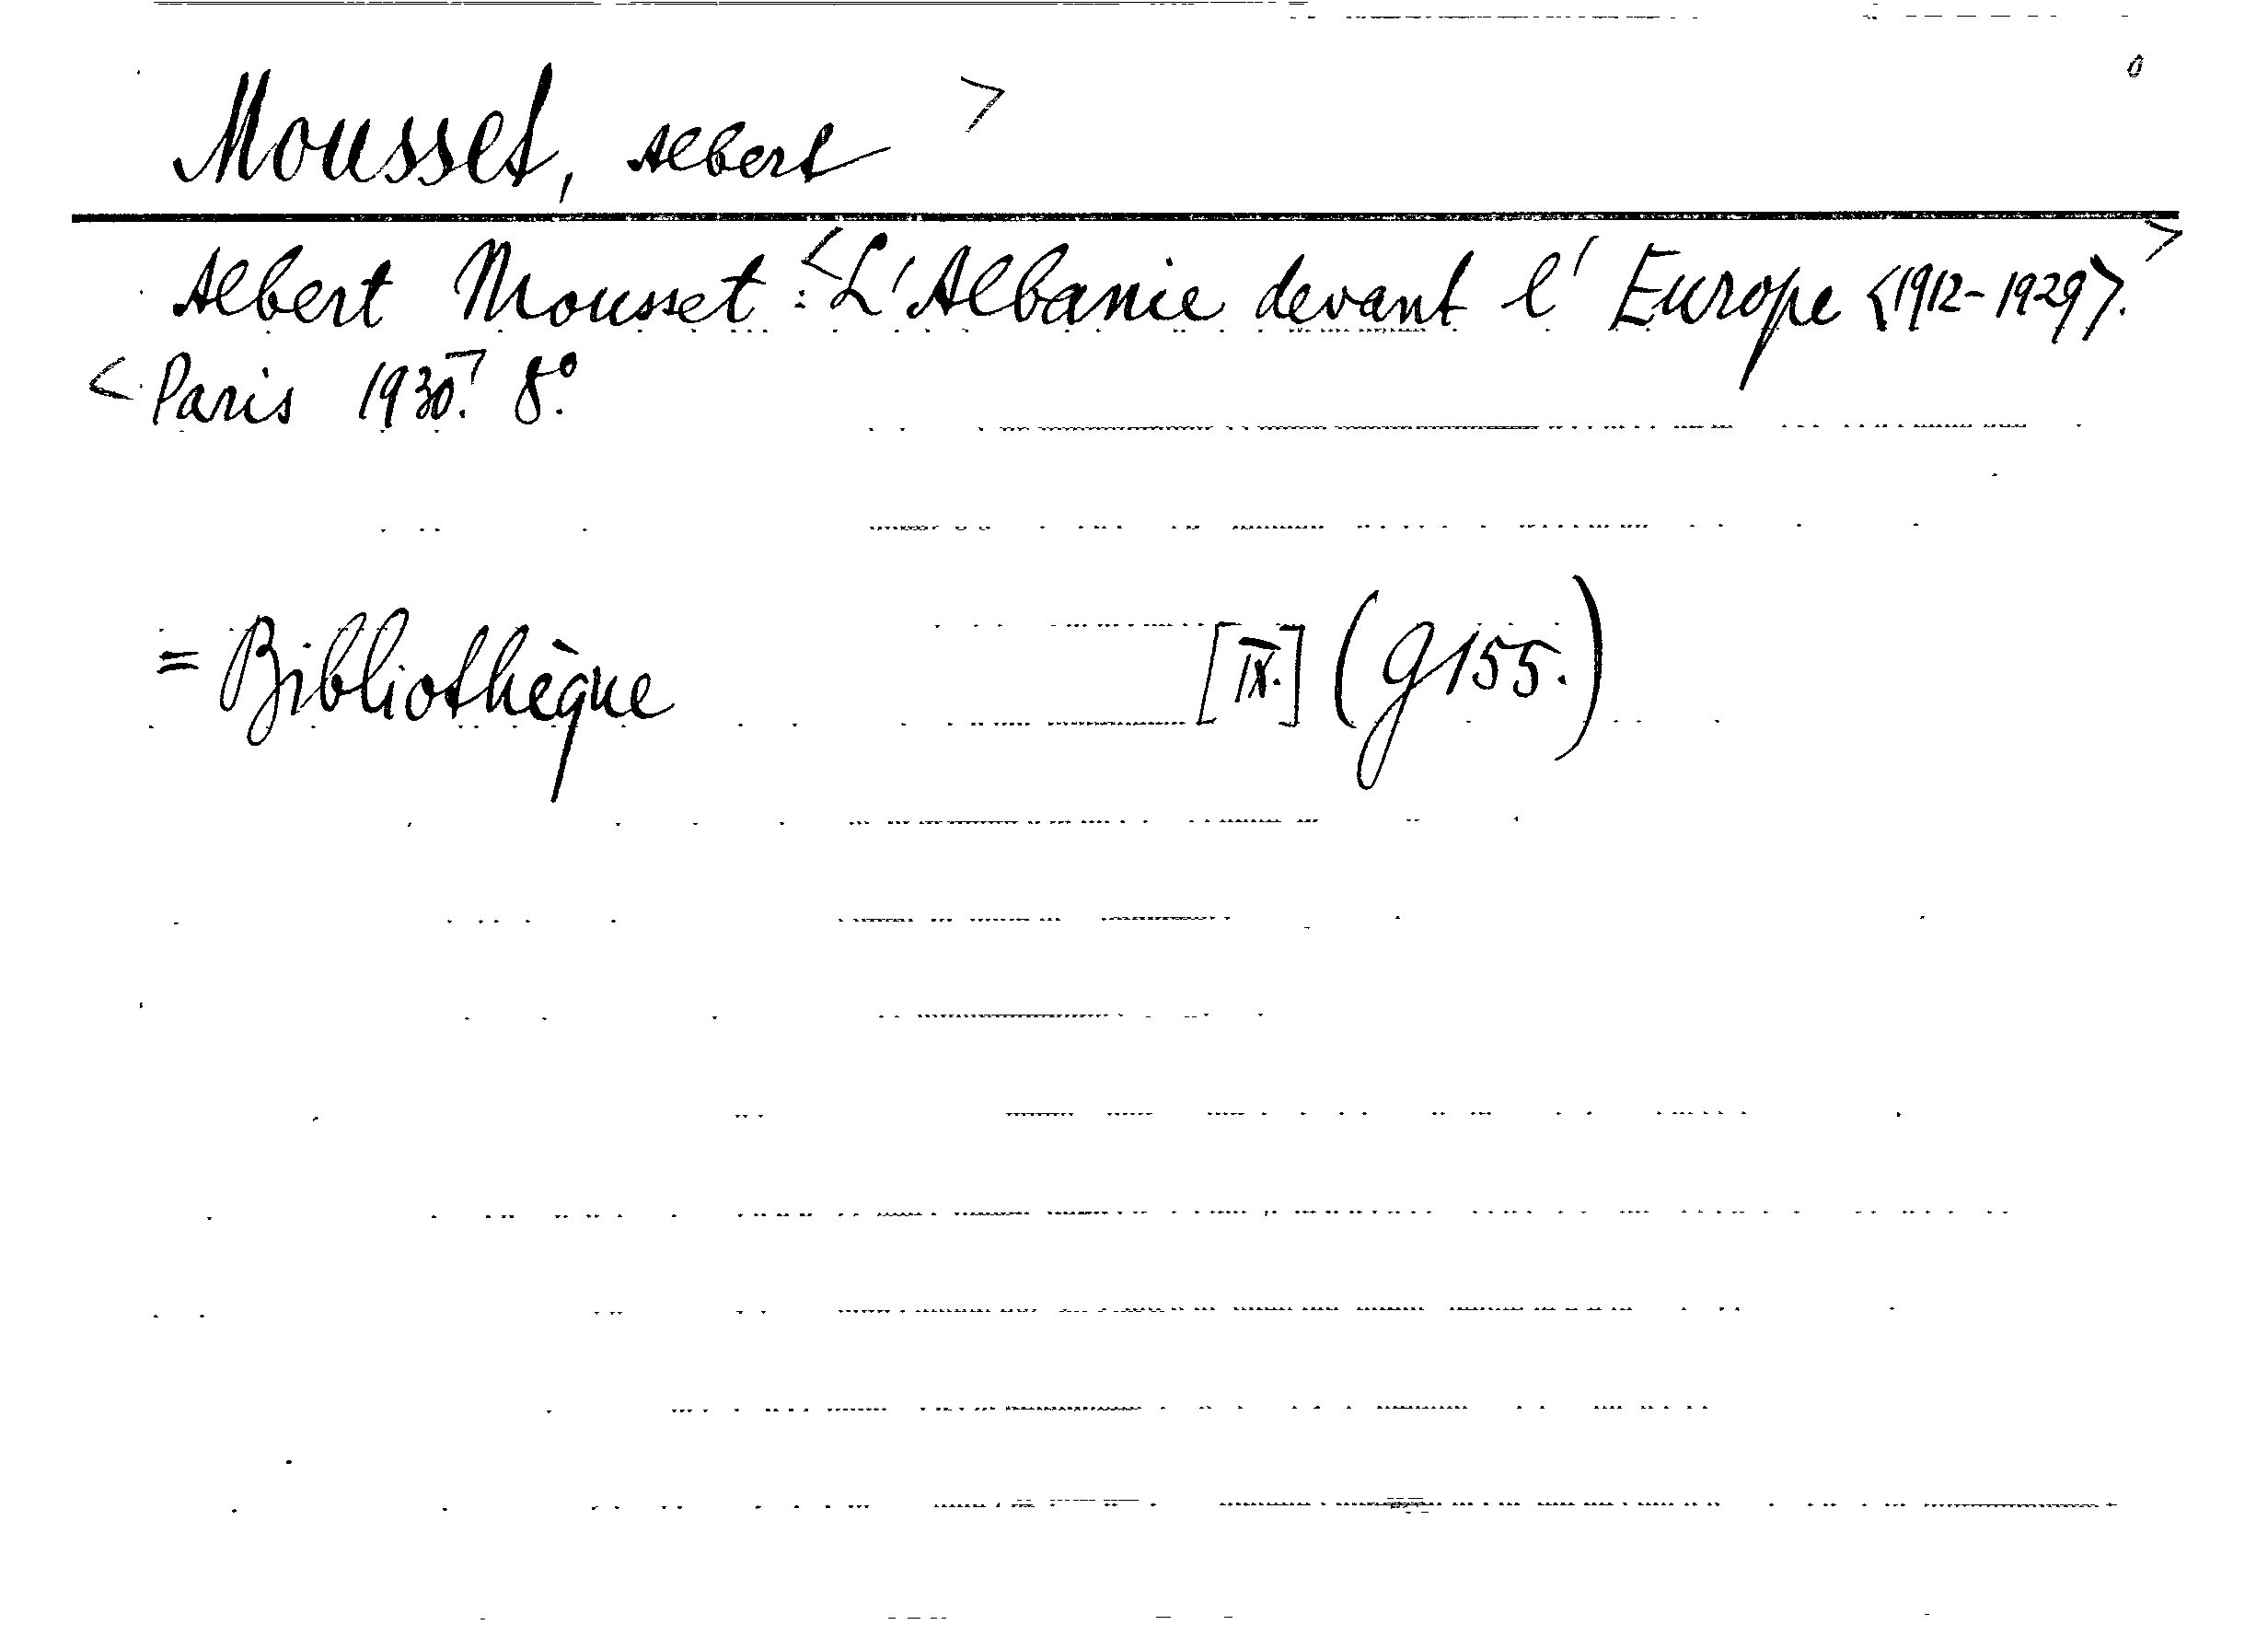 Mousset, Albert >
Albert Mousset: <L'Albanie devant l'Europe <1912-1929>.>
<Paris 1930.> 8°.
= Bibliothèque [IX.] (g155.)